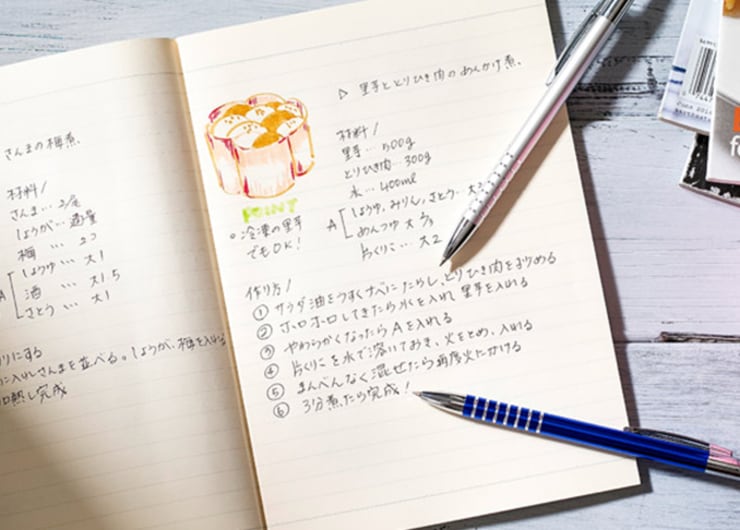 さんまの梅煮
材料/
さんま… 2尾
しょうが… 適量
梅 … 2コ
A
しょうゆ… 大1
酒 … 大1.5
さとう… 大1
りにする
に入れさんまを並べる。しょうが、梅を入れ
熱し完成
▷ 里芋ととりひき肉のあんかけ煮。
材料/
里芋… 500g
とりひき肉… 300g
水… 400ml
A
しょうゆ, みりん, さとう… 大
めんつゆ 大
片くりこ… 大2
POINT
○冷凍の里芋
でもOK!
作り方/
① サラダ油をうすくナベにたらし、とりひき肉をいためる
② ホロホロしてきたら水を入れ里芋を入れる
③ やわらかくなったらAを入れる
④ 片くりこを水で溶いておき、火をとめ、入れる
⑤ まんべんなく混ぜたら再度火にかける
⑥ 3分煮たら完成!